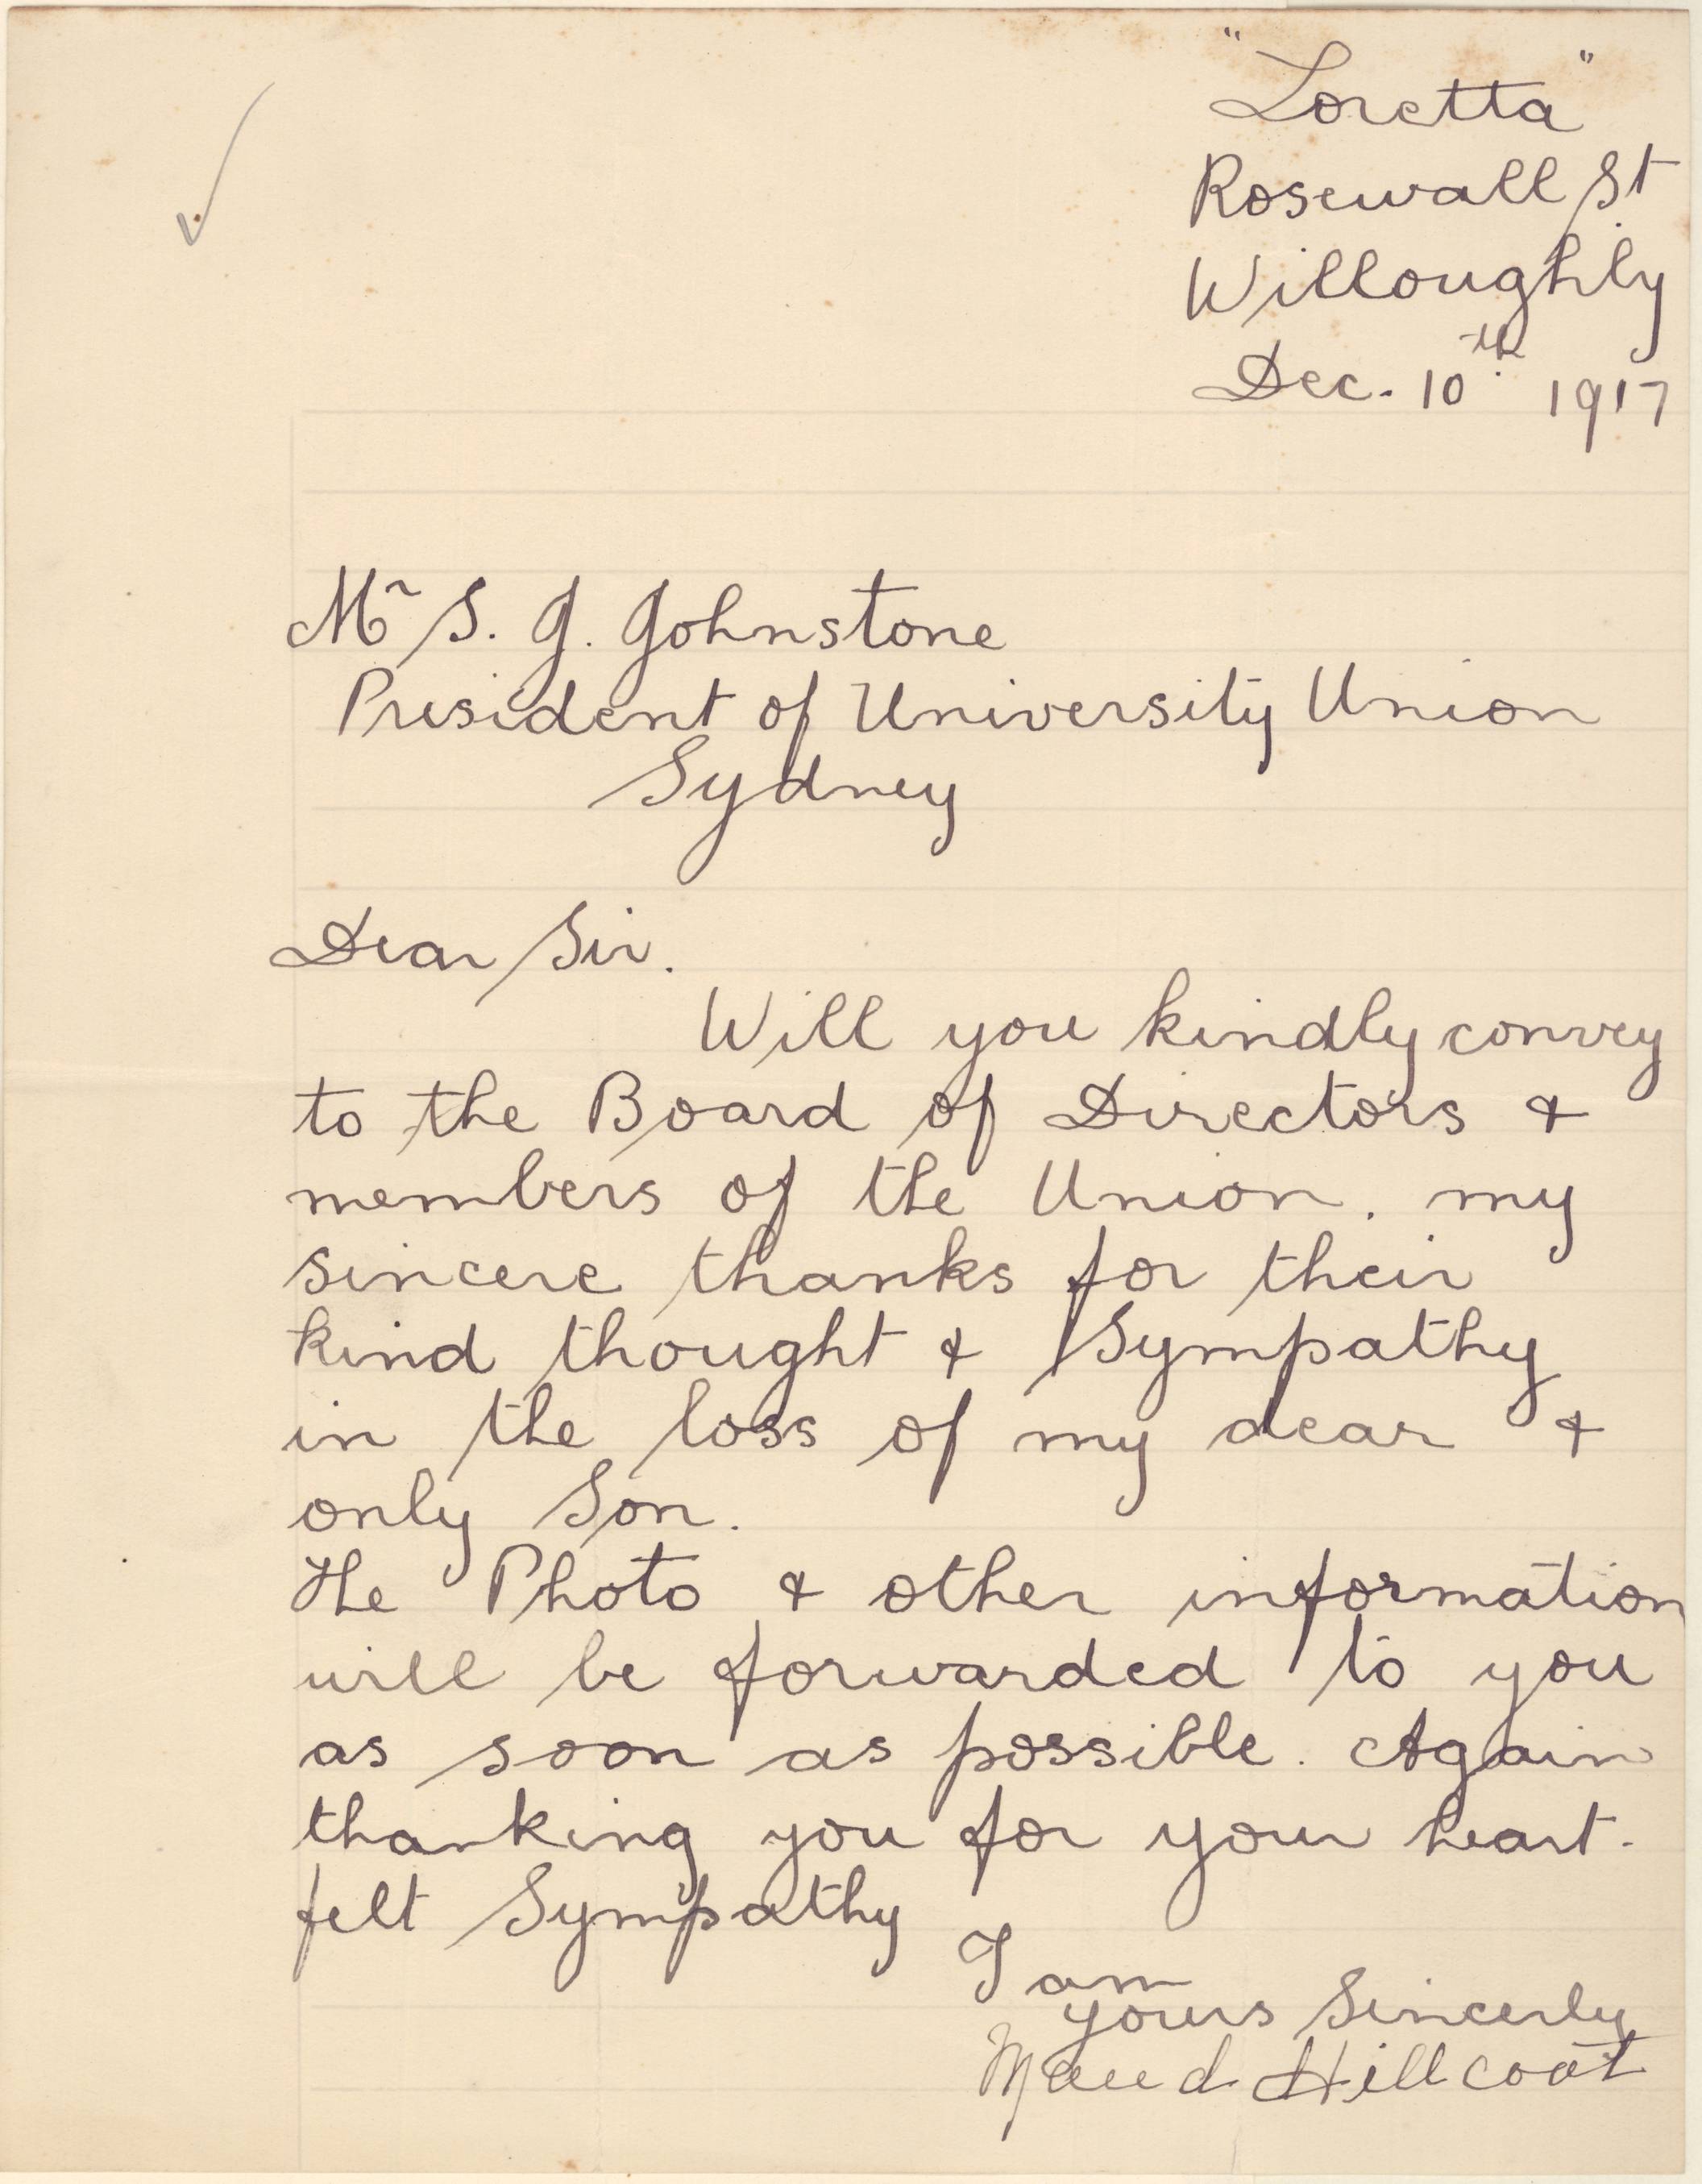 "Loretta"
Rosewall St
Willoughby
Dec. 10th 1917
Mr S. J. Johnstone
President of University Union
Sydney
Dear Sir.
Will you kindly convey
to the Board of Directors &
members of the Union. my
sincere thanks for their
kind thought & Sympathy
in the loss of my dear &
only Son.
The Photo & other information
will be forwarded to you
as soon as possible. Again
thanking you for your heart-
felt Sympathy
I am
yours Sincerly
Maud Hillcoat